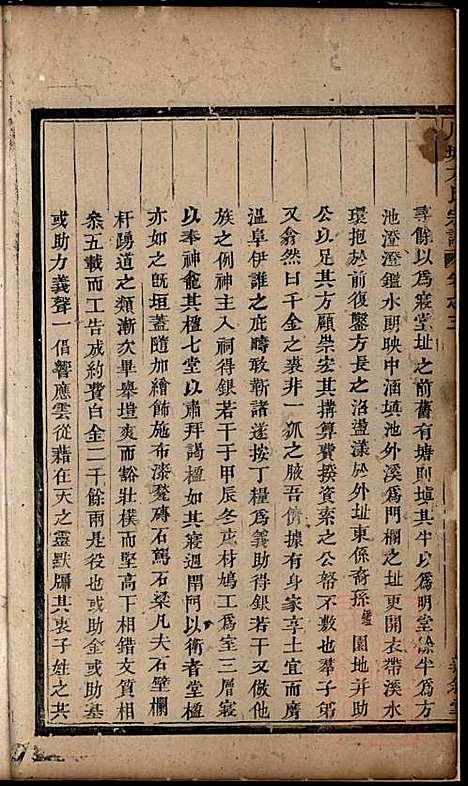 尋餘以爲寢堂址之前舊有塘則塡其半以爲明堂餘半爲方
池澄澄鑑水朗映中涵塡池外溪爲門欄之址更開衣帶溪水
環抱於前復鑿方長之沼盪漾於外址東係裔孫 園地并助
公以足其方顧崇宏其搆算費揆資索之公帑不數也羣子弟
又翕然曰千金之裘非一狐之腋吾儕據有身家享土宜而膺
溫阜伊誰之庇疇敢靳諸遂按丁糧爲義助得銀若干又做他
族之例神主入祠得銀若干于甲辰冬庀材鳩工爲室三層寢
以奉神龕其楹七堂以肅拜謁楹如其寢週閈門以衛者堂楹
亦如之旣垣蓋隨加繪飾施布漆甃磚石駕石梁凡夫石壁欄
杆踴道之類漸次畢舉塏爽而豁壯樸而堅高相錯支質相
叅五載而工告成約費白金二千餘兩是役也或出餘或助基
或助力義聲一倡響應雲從藉在天之靈默牖其衷子姓之共
氏宗譜 卷之三